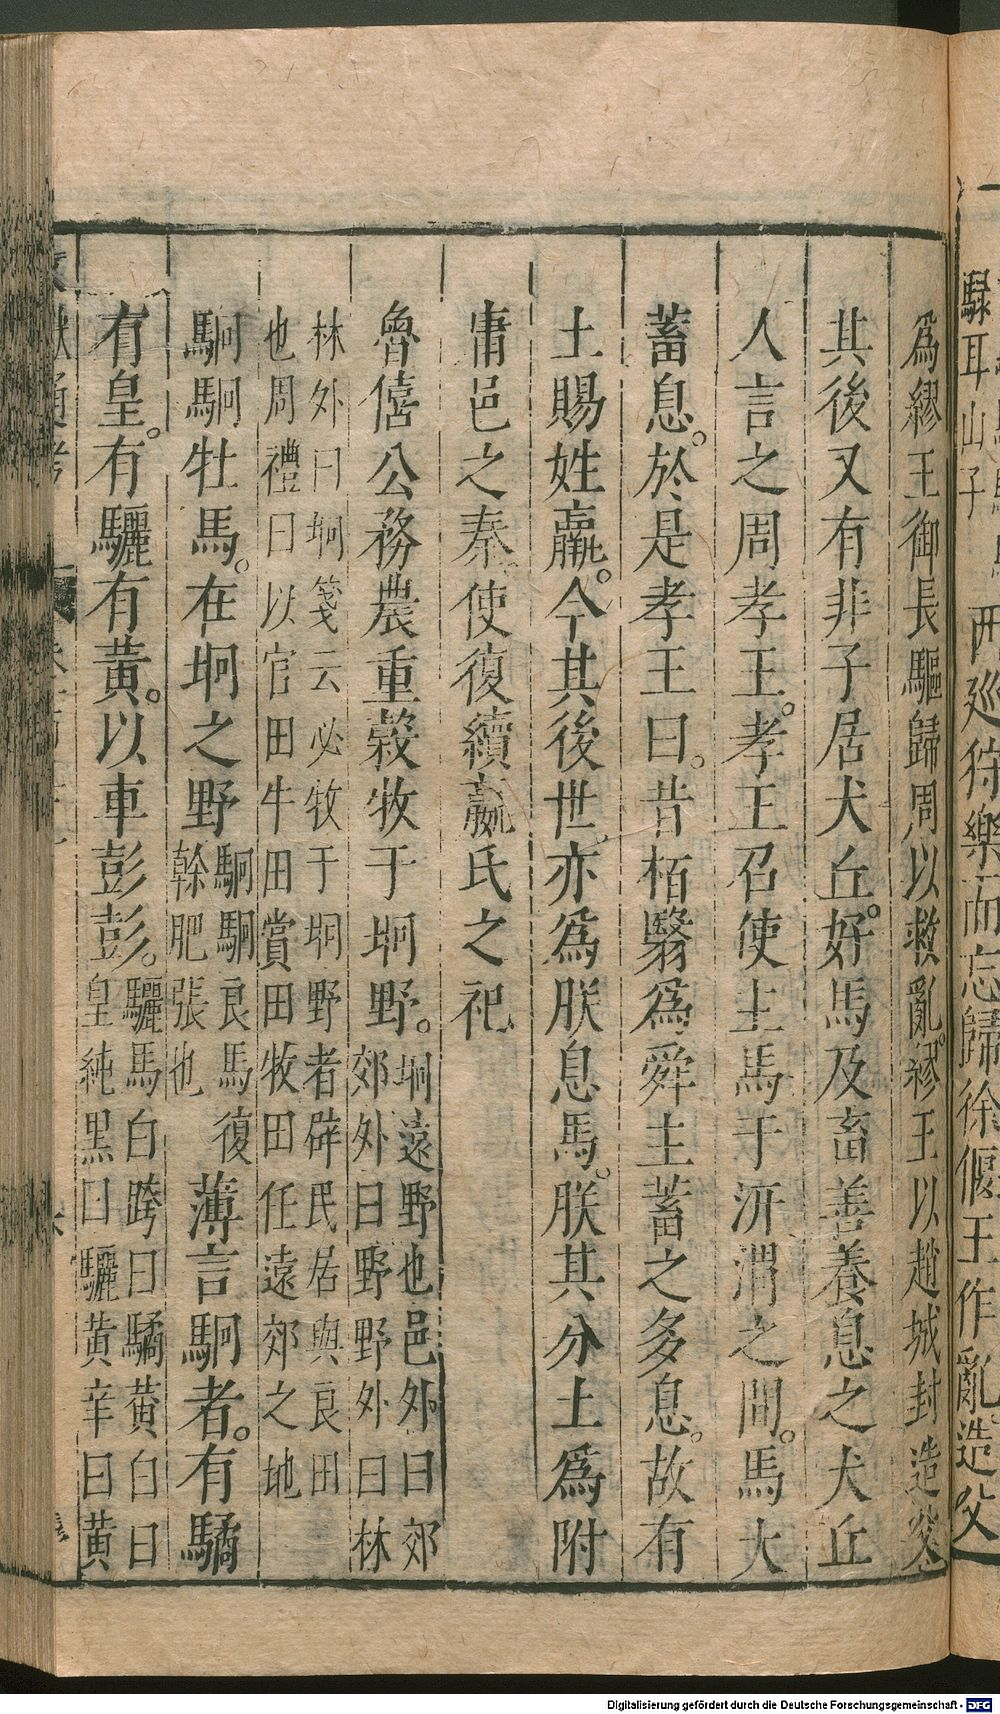 騄耳山子 西廵狩樂而忘歸徐偃王作亂。造父
爲繆王御長驅歸周以救亂。繆王以趙城封造父
其後又有非子居犬丘。好馬及畜善養息之犬丘
人言之周孝王。孝王召使主馬于汧渭之間。馬大
蓄息。於是孝王曰。昔栢翳爲舜主蓄之多息。故有
土賜姓嬴。今其後世。亦爲朕息馬。朕其分土爲附
庸邑之秦。使復續嬴氏之祀
魯僖公務農重榖牧于坰野。坰遠野也邑外曰郊
郊外曰野野外曰林
林外曰坰箋云必牧于坰野者辟民居與良田
也周禮曰以官田牛田賞田牧田任遠郊之地
駉駉牡馬。在坰之野駉駉良馬復
幹肥張也
薄言駉者。有驈
有皇。有驪有黃。以車彭彭。驪馬白跨曰驈黃白曰
皇純黑曰驪黃幸曰黃
Digitalisierung gefördert durch die Deutsche Forschungsgemeinschaft - DFG